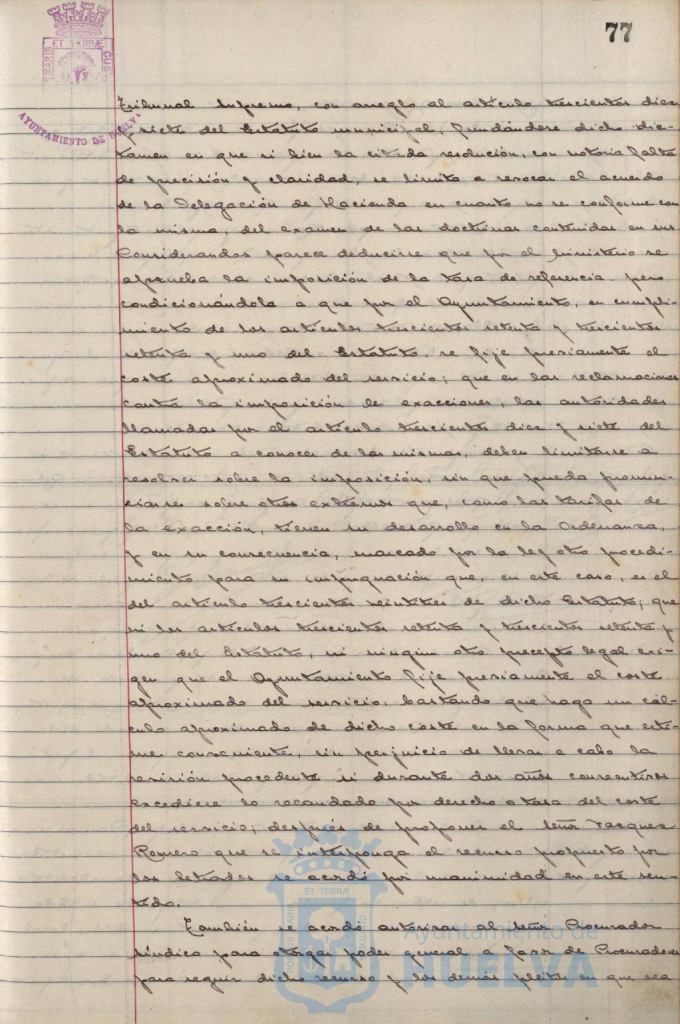 77
AYUNTAMIENTO DE HUELVA
Tribunal Supremo, con arreglo al artículo trescientos diez
y siete del Estatuto municipal, fundándose dicho dic-
tamen en que si bien la citada resolución, con notoria falta
de precisión y claridad, se limita a revocar el acuerdo
de la Delegación de Hacienda en cuanto no se conforme con
la misma, del examen de las doctrinas contenidas en sus
Considerandos parece deducirse que por el Ministerio se
aprueba la imposición de la tasa de referencia pero
condicionándola a que por el Ayuntamiento, en cumpli-
miento de los artículos trescientos setenta y trescientos
setenta y uno del Estatuto, se fije previamente el
coste aproximado del servicio; que en las reclamaciones
contra la imposición de exacciones, las autoridades
llamadas por el artículo trescientos diez y siete del
Estatuto a conocer de las mismas, deben limitarse a
resolver sobre la imposición, sin que pueda pronun-
ciarse sobre otros extremos que, como las tarifas de
la exacción, tienen su desarrollo en la Ordenanza,
y en su consecuencia, marcado por la ley otro procedi-
miento para su impugnación que, en este caso, es el
del artículo trescientos veintitres de dicho Estatuto; que
ni los artículos trescientos setenta y trescientos setenta y
uno del Estatuto, ni ningún otro precepto legal exi-
gen que el Ayuntamiento fije previamente el coste
aproximado del servicio, bastando que haga un cál-
culo aproximado de dicho coste en la forma que esti-
me conveniente, sin perjuicio de llevar a cabo la
revisión procedente si durante dos años consecutivos
excediere lo recaudado por derecho o tasa del coste
del servicio; después de proponer el señor Vazquez
Romero que se interponga el recurso propuesto por
los letrados se acordó por unanimidad en este sen-
tido.
También se acordó autorizar al señor Procurador
Síndico para otorgar poder general a favor de Procuradores
para seguir dicho recurso y los demás pleitos en que sea
Ayuntamiento de
HUELVA